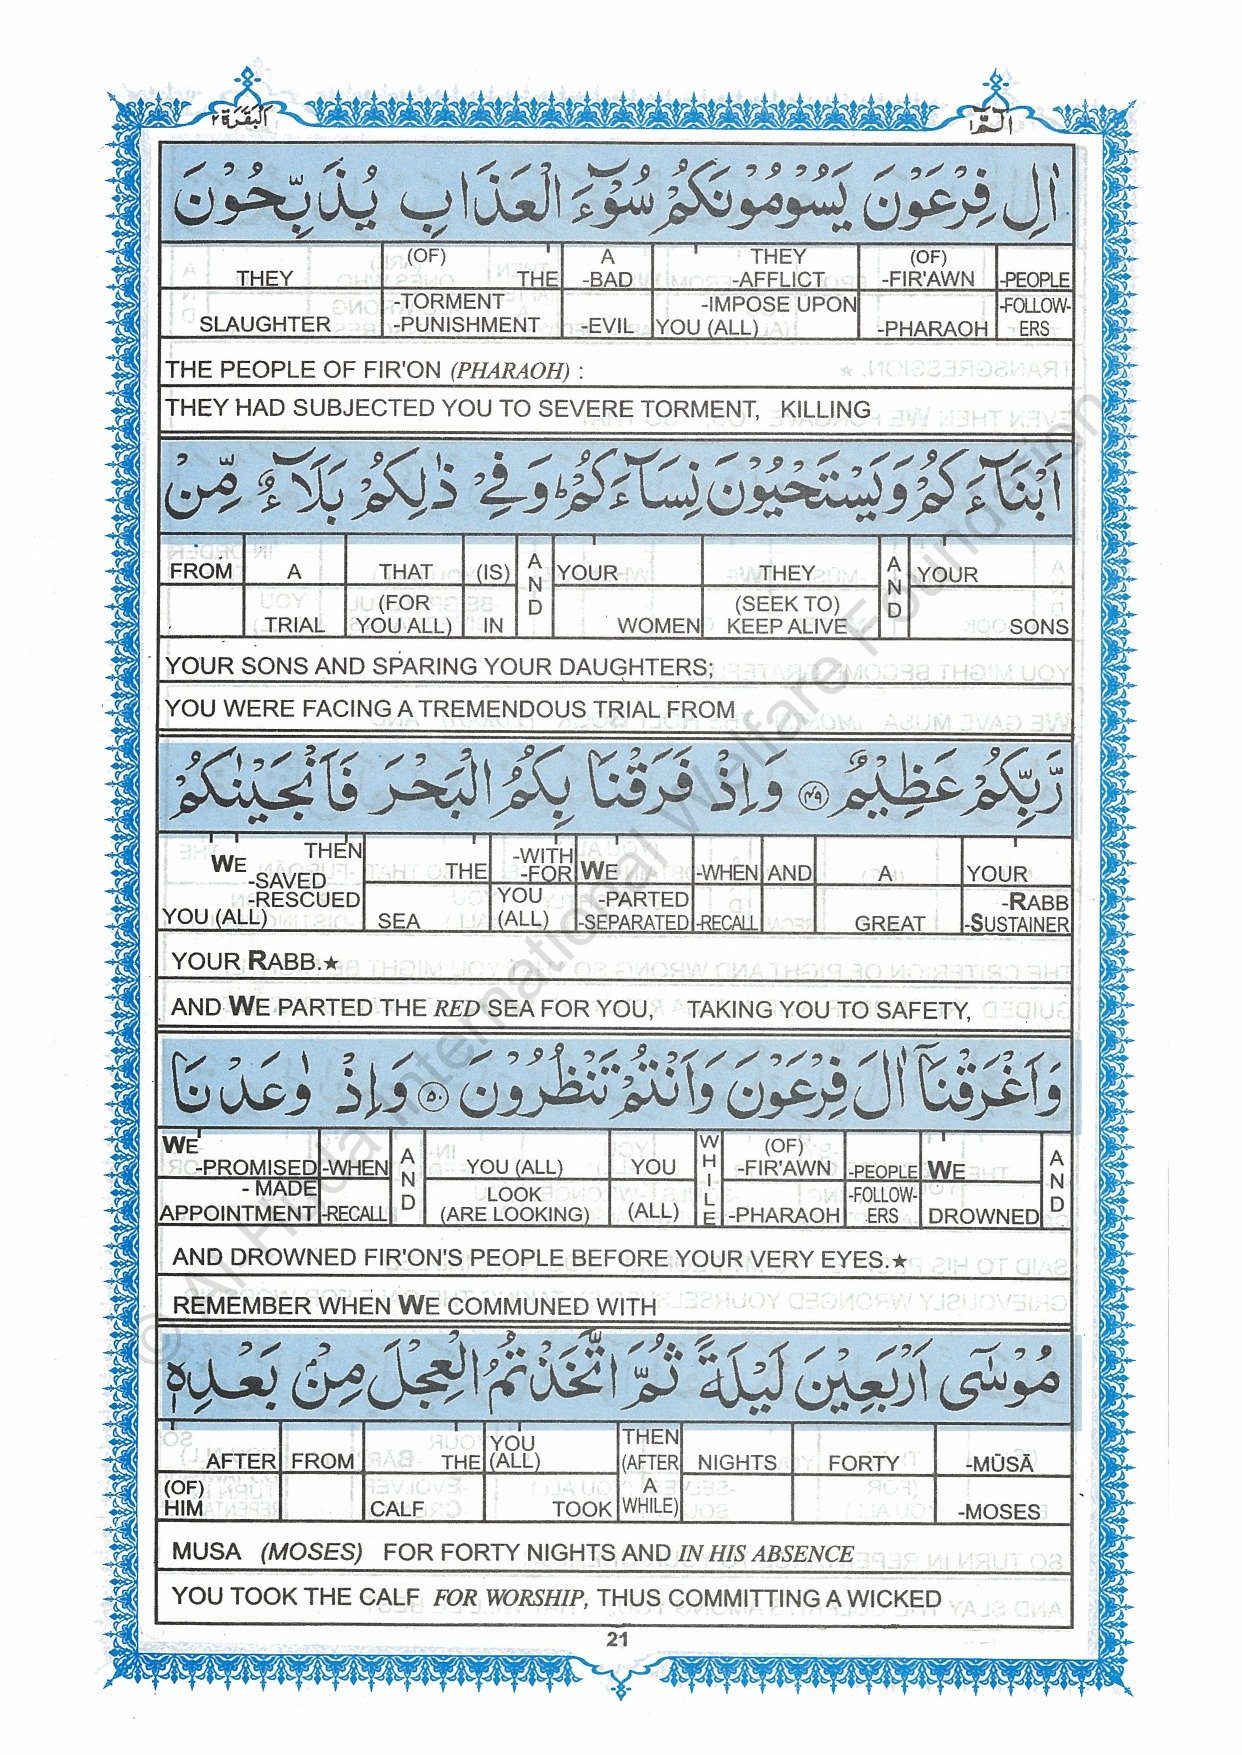 البقرة ٢ الٓمّٓ ١
اٰلِ فِرْعَوْنَ يَسُوْمُوْنَكُمْ سُوْٓءَ الْعَذَابِ يُذَبِّحُوْنَ
(OF) A THEY (OF)
THEY THE -BAD -AFFLICT -FIR'AWN -PEOPLE
-TORMENT -IMPOSE UPON -FOLLOW-
SLAUGHTER -PUNISHMENT -EVIL YOU (ALL) -PHARAOH ERS
THE PEOPLE OF FIR'ON (PHARAOH) :
THEY HAD SUBJECTED YOU TO SEVERE TORMENT, KILLING
اَبْنَآءَكُمْ وَيَسْتَحْيُوْنَ نِسَآءَكُمْ ؕ وَفِيْ ذٰلِكُمْ بَلَآءٌ مِّنْ
FROM A THAT (IS) AND YOUR THEY AND YOUR
(FOR (SEEK TO)
TRIAL YOU ALL) IN WOMEN KEEP ALIVE SONS
YOUR SONS AND SPARING YOUR DAUGHTERS;
YOU WERE FACING A TREMENDOUS TRIAL FROM
رَّبِّكُمْ عَظِيْمٌ ۝٤٩ وَاِذْ فَرَقْنَا بِكُمُ الْبَحْرَ فَاَنْجَيْنٰكُمْ
WE THEN -WITH
-SAVED THE -FOR WE -WHEN AND A YOUR
-RESCUED YOU -PARTED -RABB
YOU (ALL) SEA (ALL) -SEPARATED -RECALL GREAT -SUSTAINER
YOUR RABB.★
AND WE PARTED THE RED SEA FOR YOU, TAKING YOU TO SAFETY,
وَاَغْرَقْنَآ اٰلَ فِرْعَوْنَ وَاَنْتُمْ تَنْظُرُوْنَ ۝٥٠ وَاِذْ وٰعَدْنَا
WE (OF)
-PROMISED -WHEN AND YOU (ALL) YOU WHILE -FIR'AWN -PEOPLE WE AND
- MADE LOOK -FOLLOW-
APPOINTMENT -RECALL (ARE LOOKING) (ALL) -PHARAOH ERS DROWNED
AND DROWNED FIR'ON'S PEOPLE BEFORE YOUR VERY EYES.★
REMEMBER WHEN WE COMMUNED WITH
مُوْسٰٓى اَرْبَعِيْنَ لَيْلَةً ثُمَّ اتَّخَذْتُمُ الْعِجْلَ مِنْۢ بَعْدِهٖ
YOU THEN
AFTER FROM THE (ALL) (AFTER NIGHTS FORTY -MŪSĀ
(OF) A
HIM CALF TOOK WHILE) -MOSES
MUSA (MOSES) FOR FORTY NIGHTS AND IN HIS ABSENCE
YOU TOOK THE CALF FOR WORSHIP, THUS COMMITTING A WICKED
21
© Al Huda International Welfare Foundation